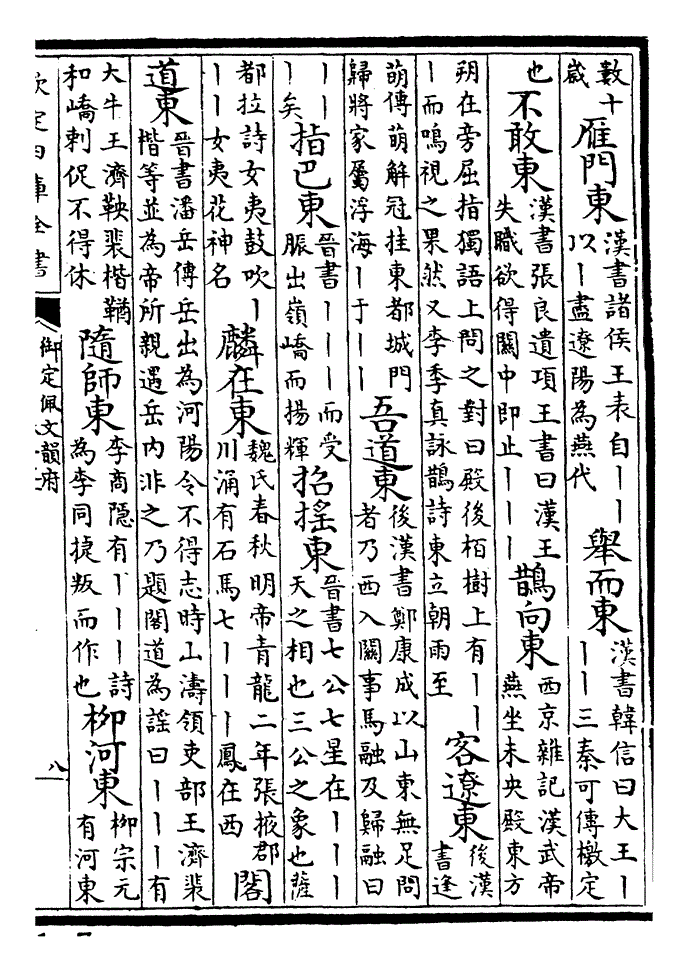 數十歲雁門東漢書諸侯王表自丨丨以丨盡遼陽為燕代舉而東漢書韓信曰大王丨丨丨三秦可傳檄定
也不敢東漢書張良遺項王書曰漢王失職欲得關中即止丨丨丨鵲向東西京雜記漢武帝燕坐未央殿東方
朔在旁屈指獨語上問之對曰殿後栢樹上有丨丨丨而鳴視之果然又李季真詠鵲詩東立朝雨至客遼東後漢書逢
萌傳萌解冠挂東都城門歸將家屬浮海丨于丨丨吾道東後漢書鄭康成以山東無足問者乃西入關事馬融及歸融曰
丨丨丨矣指巴東晉書丨丨丨而受脤出嶺嶠而揚輝招搖東晉書七公七星在丨丨丨天之相也三公之象也薩
都拉詩女夷鼓吹丨丨丨女夷花神名麟在東魏氏春秋明帝青龍二年張掖郡川涌有石馬七丨丨丨鳳在西閣
道東晉書潘岳傳岳出為河陽令不得志時山濤領吏部王濟裴楷等並為帝所親遇岳内非之乃題閣道為謠曰丨丨丨有
大牛王濟鞅裴楷鞧和嶠刺促不得休隨師東李商隱有丨丨丨詩為李同捷叛而作也柳河東柳宗元有河東
欽定四庫全書
御定佩文韻府
八